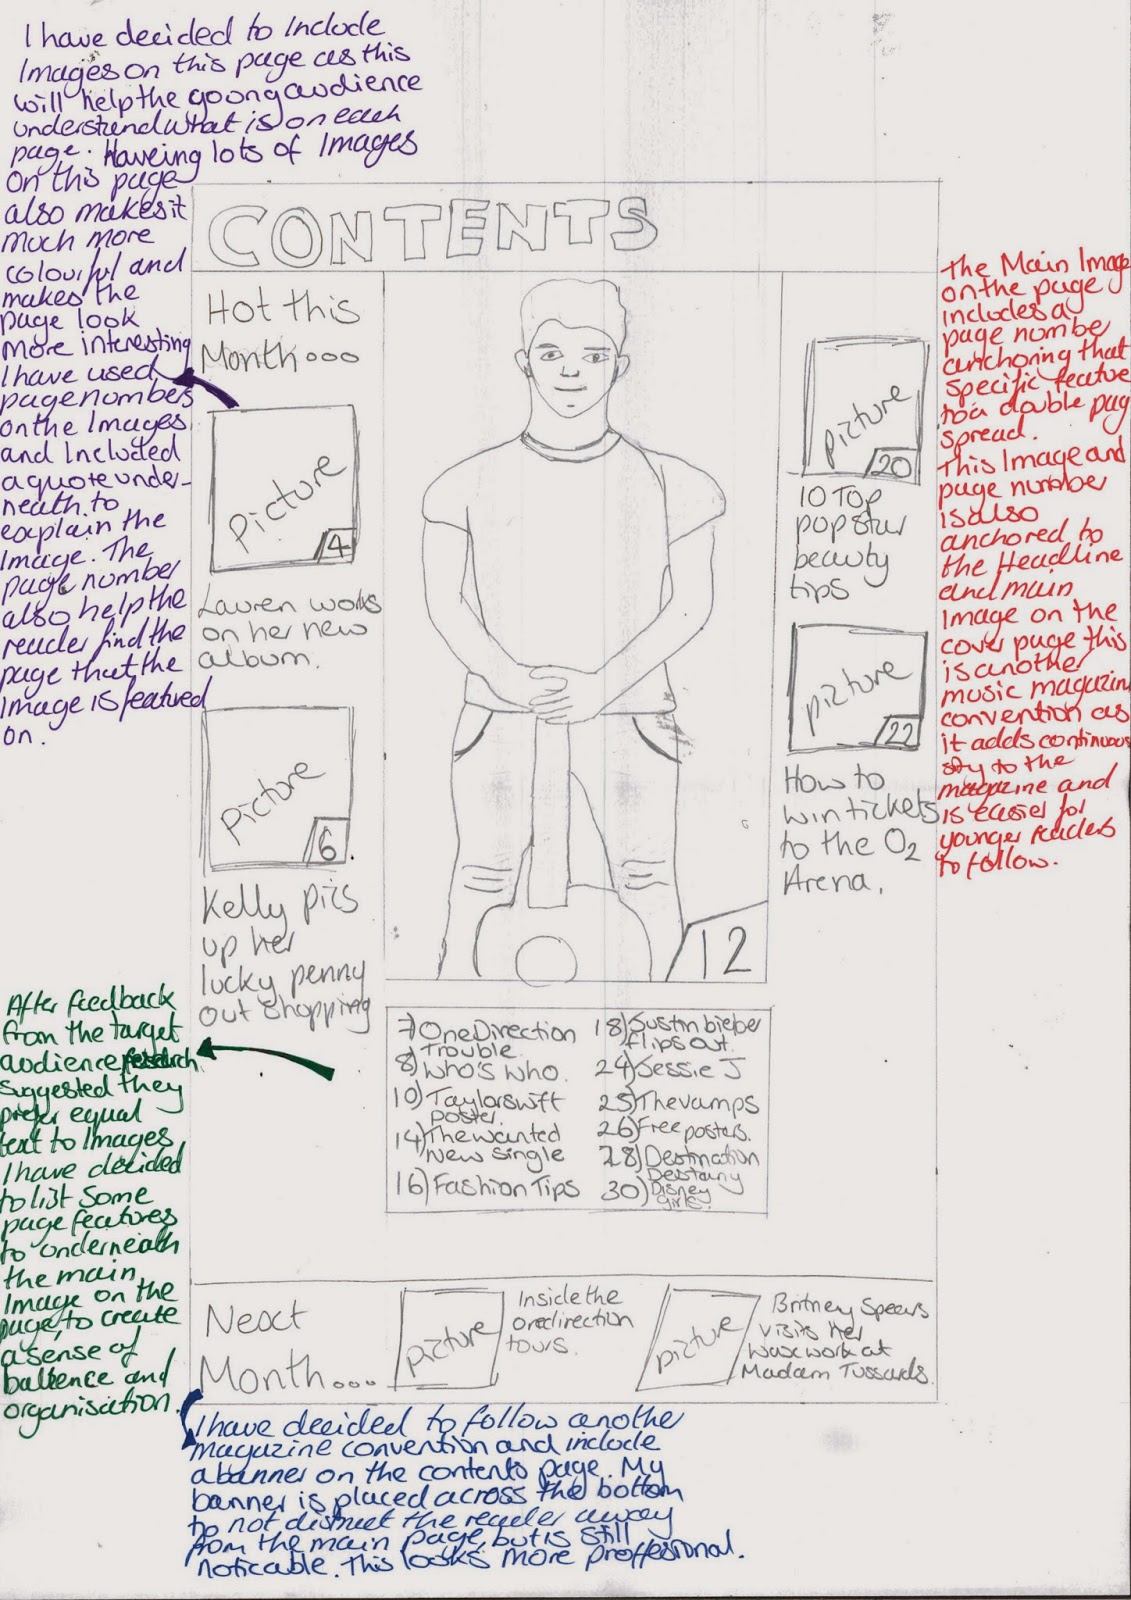 I have decided to Include
Images on this page as this
will help the goong audience
understand what is on each
page. Haveing lots of Images
on this page
also makes it
much more
colourful and
makes the
page look
more interesting
I have used
page numbers
on the Images
and Included
a quote under-
neath to
explain the
Image. The
page number
also help the
reader find the
page that the
Image is featured
on.
CONTENTS
Hot this
Month...
picture
4
Lauren works
on her new
album.
picture
6
Kelly pics
up her
lucky penny
out shopping
12
picture
20
10 Top
popstar
beauty
tips
picture
22
How to
win tickets
to the O2
Arena.
the Main Image
on the page
includes a
page number
anchoring that
specific feature
to a double pag
spread.
This Image and
page number
is also
anchored to
the Headline
and main
Image on the
cover page this
is another
music magazin
convention as
it adds continuous
sty to the
magazine and
is easier for
younger readers
to follow.
After feedback
from the target
audience
suggested they
prefer equal
text to Images
I have decided
to list some
page features
to underneath
the main
Image on the
page, to create
a sense of
ballence and
organisation.
7) One Direction
Trouble
8) Who's who.
10) Taylor swift
poster.
14) The wanted
New single
16) Fashion Tips
18) Justin bieber
flips out.
24) Jessie J
25) The vamps
26) Free posters.
28) Destination
Destany
30) Disney
girls.
Next
Month...
picture
Inside the
onedirection
tours.
picture
Britney Spears
visits her
waxwork at
Madam Tussards.
I have decided to follow another
magazine convention and include
a banner on the contents page. My
banner is placed across the bottom
to not distract the reader away
from the main page, but is still
noticable. This looks more proffesional.